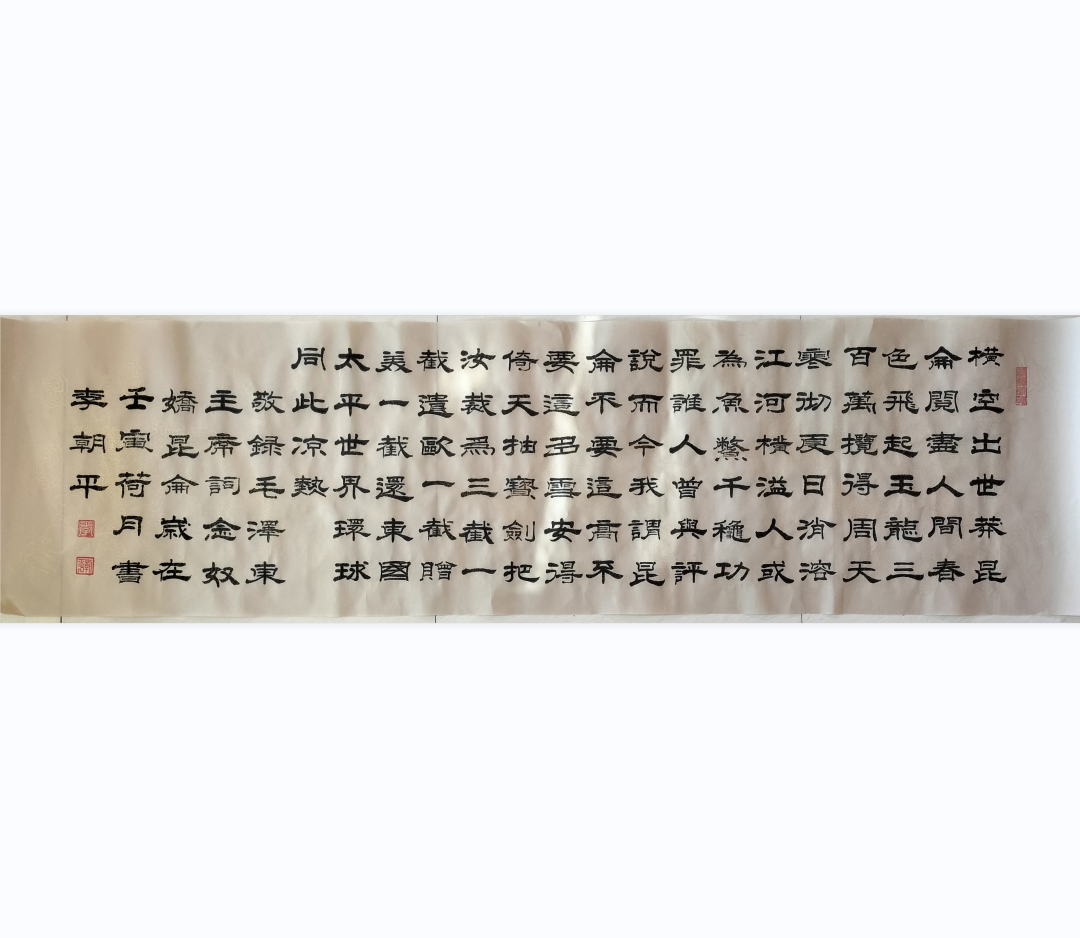 橫空出世莽昆
侖閱盡人間春
色飛起玉龍三
百萬攪得周天
寒彻夏日消溶
江河横溢人或
為魚鱉千穐功
罪誰人曾與評
說而今我謂昆
侖不要這高不
要這多雪安得
倚天抽寶劍把
汝裁爲三截一
截遺歐一截贈
美一截還東國
太平世界環球
同此凉熱
敬録毛澤東
主席詞念奴
嬌昆侖歲在
壬寅荷月書
李朝平